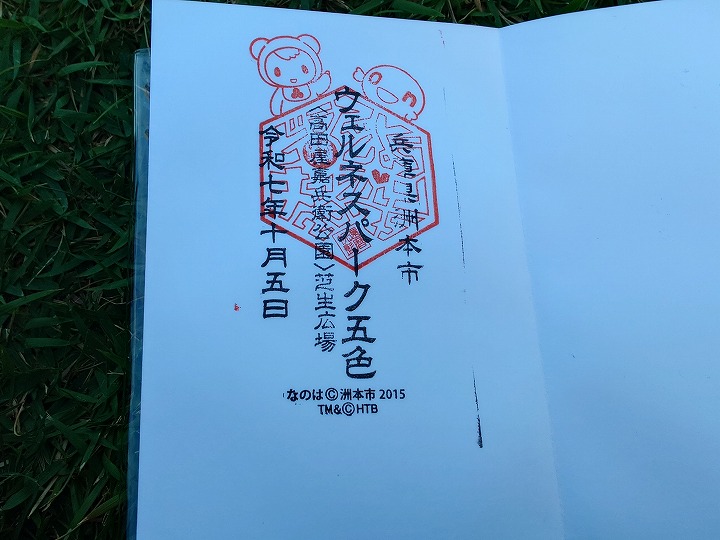 兵庫県洲本市
ウェルネスパーク五色
〈高田屋嘉兵衛公園〉芝生広場
令和七年十月五日
なのは©洲本市 2015
TM&©HTB